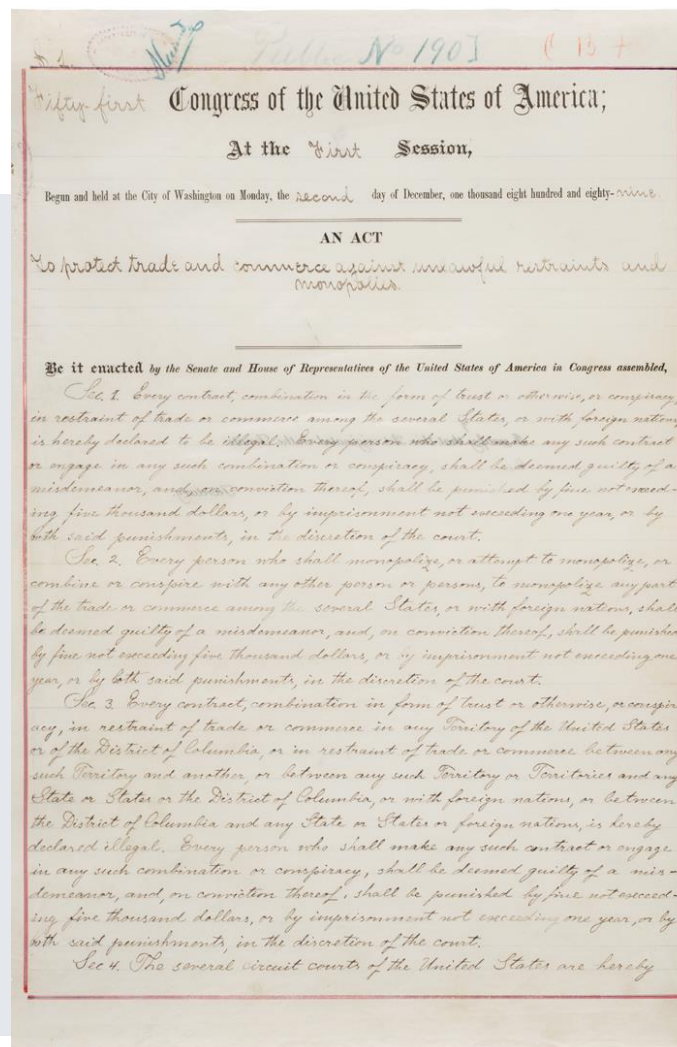 Public No 190
Fifty-first Congress of the United States of America;
At the First Session,
Begun and held at the City of Washington on Monday, the second day of December, one thousand eight hundred and eighty-nine.
AN ACT
To protect trade and commerce against unlawful restraints and
monopolies.
Be it enacted by the Senate and House of Representatives of the United States of America in Congress assembled,
Sec. 1. Every contract, combination in the form of trust or otherwise, or conspiracy,
in restraint of trade or commerce among the several States, or with foreign nations,
is hereby declared to be illegal. Every person who shall make any such contract
or engage in any such combination or conspiracy, shall be deemed guilty of a
misdemeanor, and, on conviction thereof, shall be punished by fine not exceed-
ing five thousand dollars, or by imprisonment not exceeding one year, or by
both said punishments, in the discretion of the court.
Sec. 2. Every person who shall monopolize, or attempt to monopolize, or
combine or conspire with any other person or persons, to monopolize any part
of the trade or commerce among the several States, or with foreign nations, shall
be deemed guilty of a misdemeanor, and, on conviction thereof, shall be punished
by fine not exceeding five thousand dollars, or by imprisonment not exceeding one
year, or by both said punishments, in the discretion of the court.
Sec. 3. Every contract, combination in form of trust or otherwise, or conspir
acy, in restraint of trade or commerce in any Territory of the United States
or of the District of Columbia, or in restraint of trade or commerce between any
such Territory and another, or between any such Territory or Territories and any
State or States or the District of Columbia, or with foreign nations, or between
the District of Columbia and any State or States or foreign nations, is hereby
declared illegal. Every person who shall make any such contract or engage
in any such combination or conspiracy, shall be deemed guilty of a mis-
demeanor, and, on conviction thereof, shall be punished by fine not exceed-
ing five thousand dollars, or by imprisonment not exceeding one year, or by
both said punishments, in the discretion of the court.
Sec 4. The several circuit courts of the United States are hereby